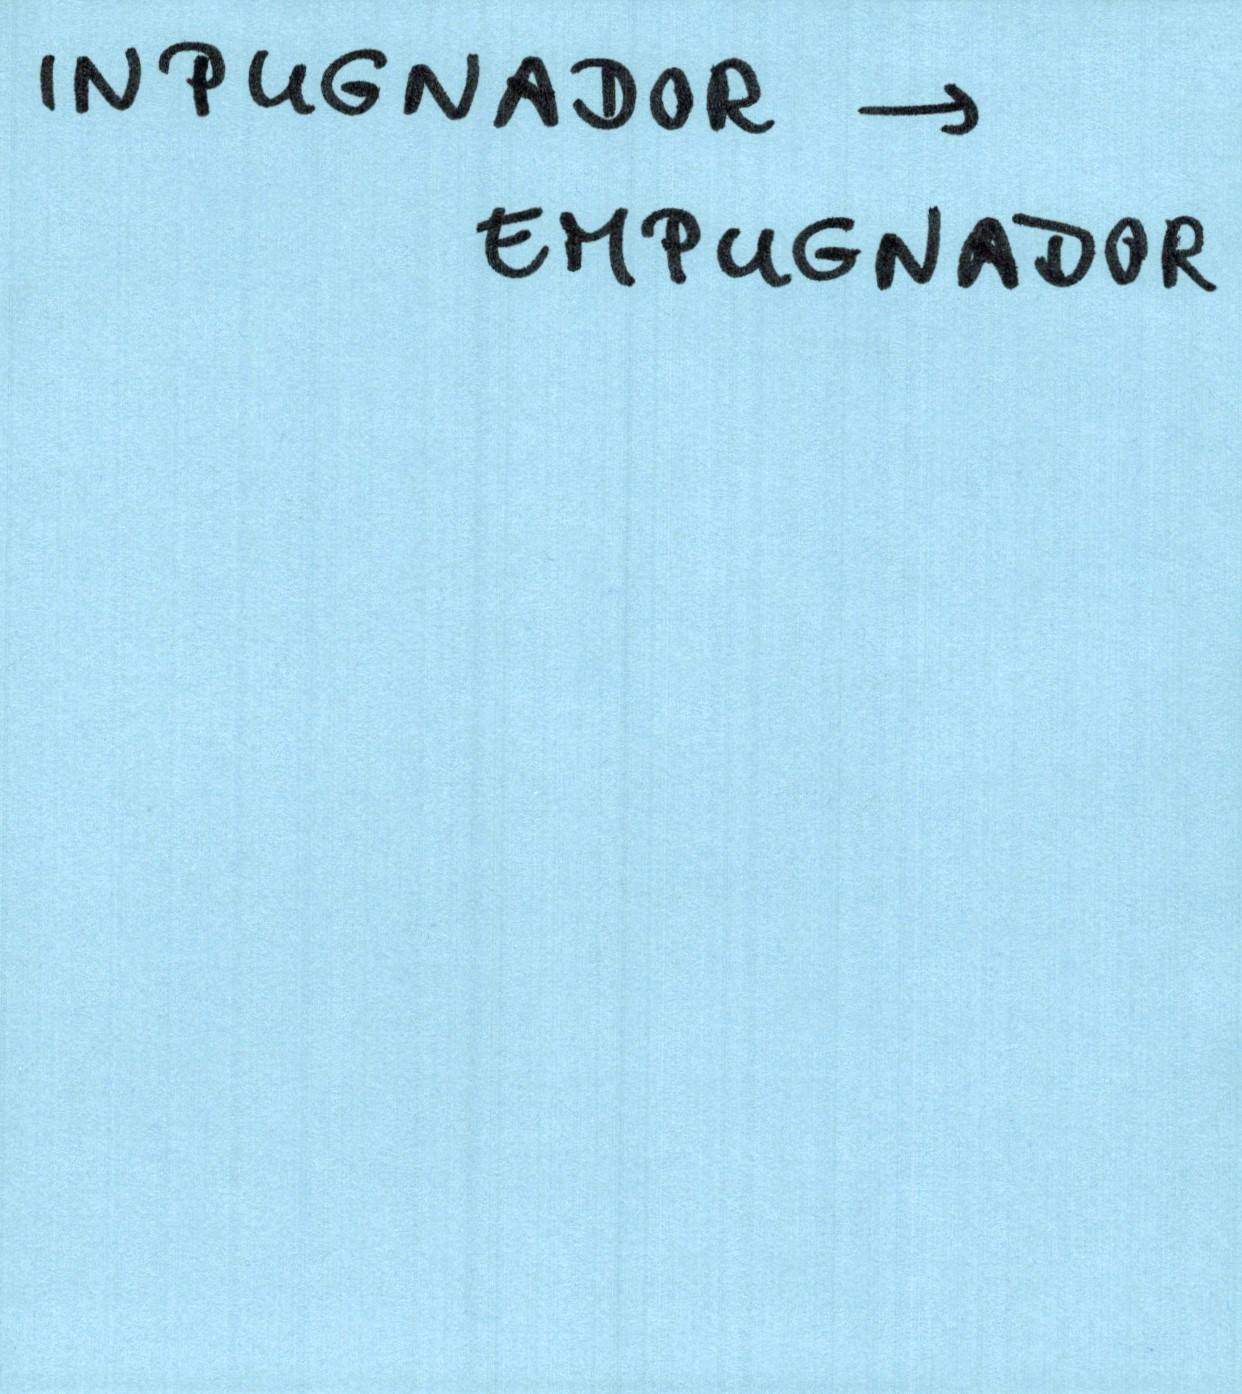 INPUGNADOR →
EMPUGNADOR